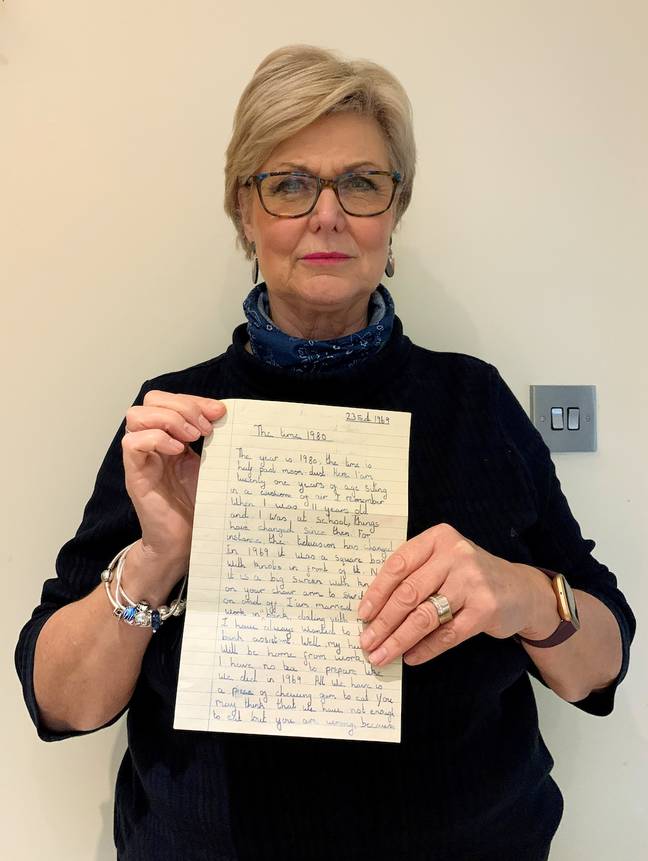 23rd 1969
The time 1980
The year is 1980, the time is
half past moon-dust. Here I am
twenty one years of age siting
in a cushone of air I remember
When I was 11 years old
and I was at school, things
have changed since then. For
instance the television has changed
In 1969 it was a square box
with knobs in front of it. N
it is a big screen with kn
on your chair arm to switch
on and off. I am married
work in bank, dealing with m
I have always wanted to
bank assistent. Well my hu
Will be home from work
I have no tea to prepare like
we did in 1969. All we have is
a piece of chewing gum to eat you
may think that we have not enough
to eat but you are wrong, because